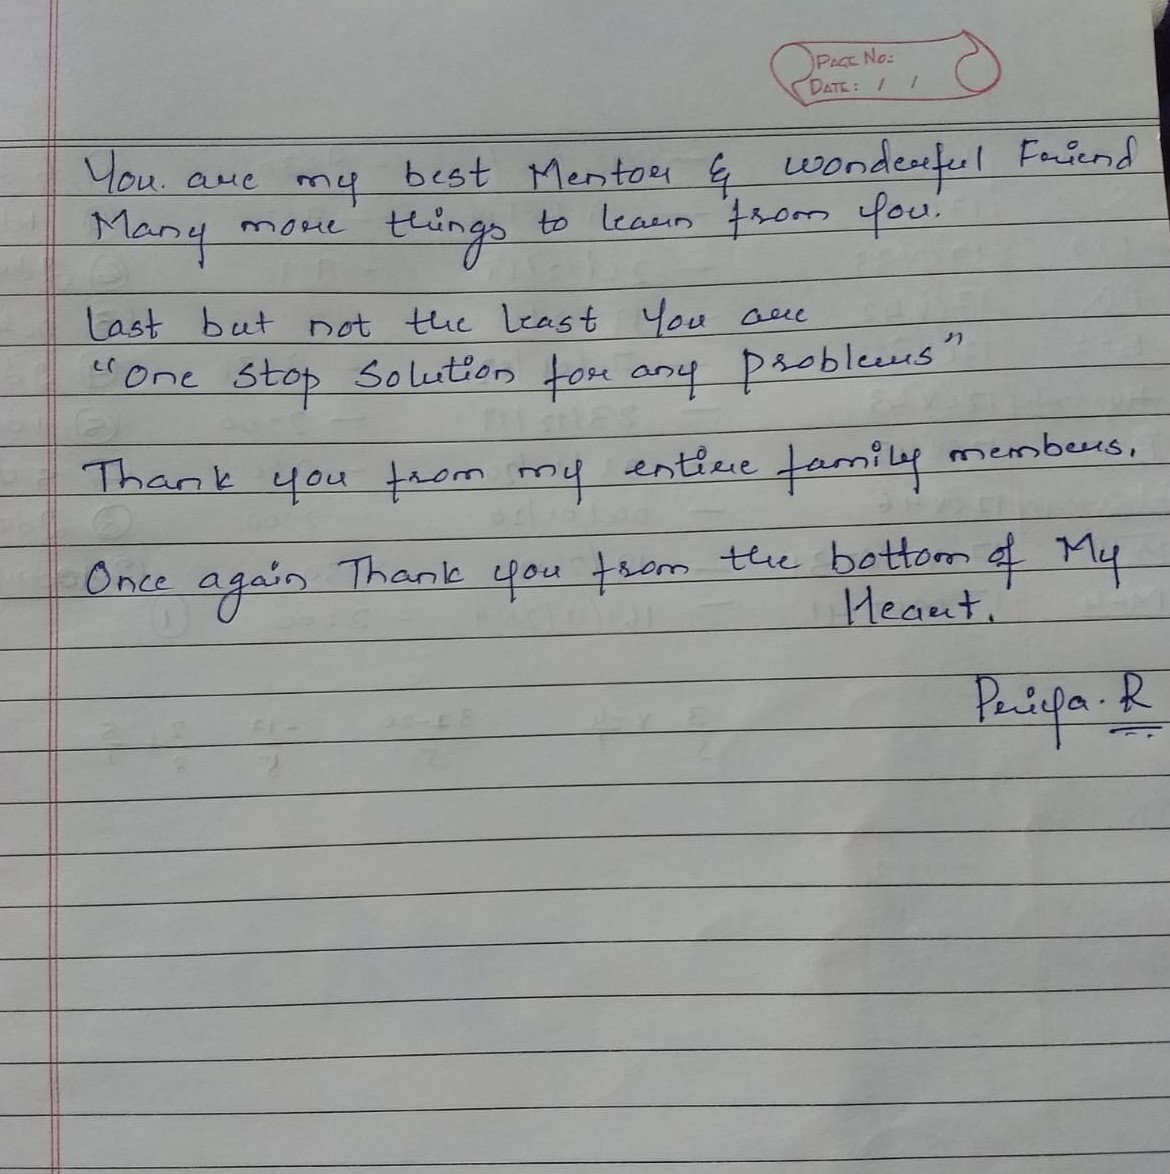 PAGE No:
DATE: / /
You are my best Mentor & wonderful Friend
Many more things to learn from you.
Last but not the least You are
"One stop Solution for any problems"
Thank you from my entire family members.
Once again Thank you from the bottom of My
Heart.
Priya. R